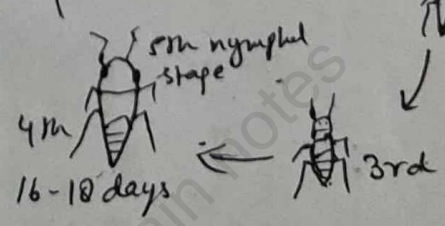 5th nymphal
stage
4th
16-18 days
3rd
in notes